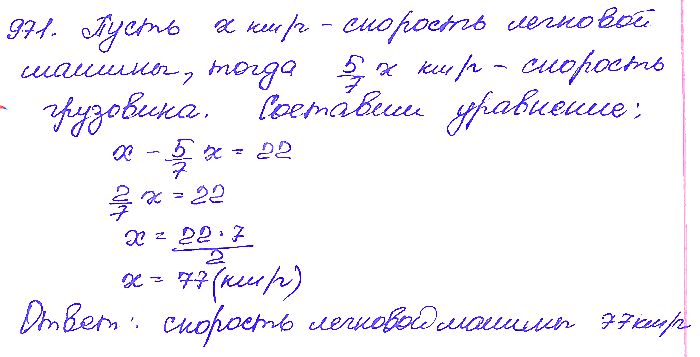 971. Пусть x км/ч - скорость легковой
машины, тогда 5/7 x км/ч - скорость
грузовика. Составим уравнение:
x - 5/7 x = 22
2/7 x = 22
x = 22·7/2
x = 77 (км/ч)
Ответ: скорость легковой машины 77 км/ч